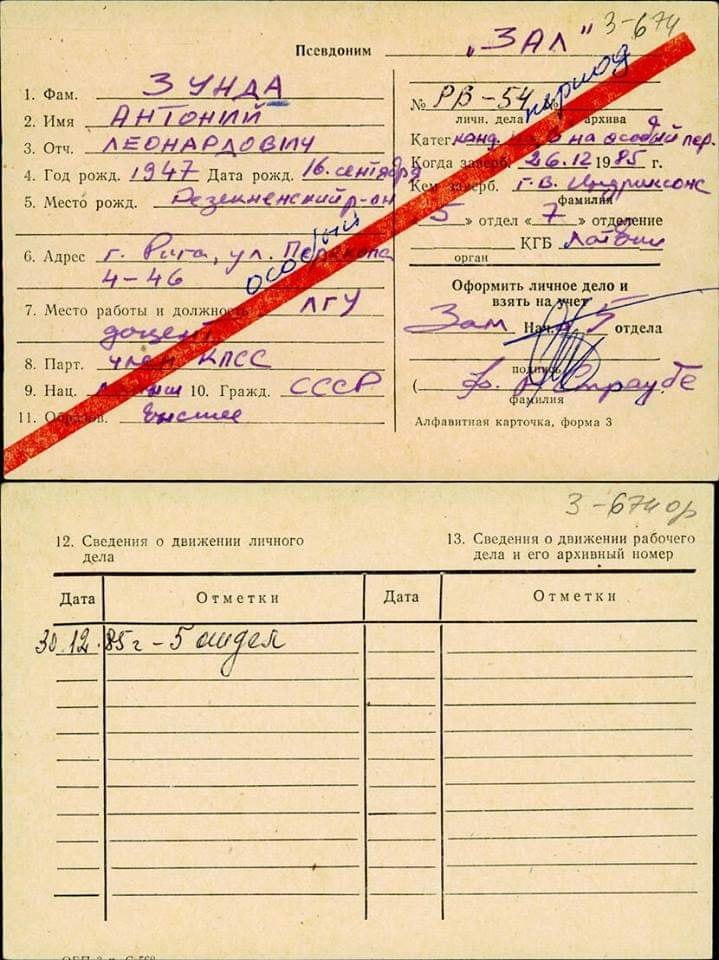 3-674
Псевдоним „ЗАЛ"
1. Фам. ЗУНДА
2. Имя АНТОНИЙ
3. Отч. ЛЕОНАРДОВИЧ
4. Год рожд. 1947 Дата рожд. 16. сентября
5. Место рожд. Резекненский р-он
6. Адрес г. Рига, ул. Перекопа
4-46
7. Место работы и должность ЛГУ
доцент
8. Парт. член КПСС
9. Нац. 10. Гражд. СССР
11. Образов. высшее
особый период
№ РВ-54 №
личн. дела архива
Катег. канд. на особый пер.
Когда заверб. 26.12 1985 г.
Кем заверб. Г.В. Индриксонс
фамилия
5 » отдел « 7 » отделение
КГБ Латвии
орган
Оформить личное дело и
взять на учет
Зам Нач. 5 отдела
подпись
( Страубе
фамилия
Алфавитная карточка, форма 3
3-674 ор
12. Сведения о движении личного
дела
13. Сведения о движении рабочего
дела и его архивный номер
Дата Отметки Дата Отметки
30.12.85г - 5 отдел